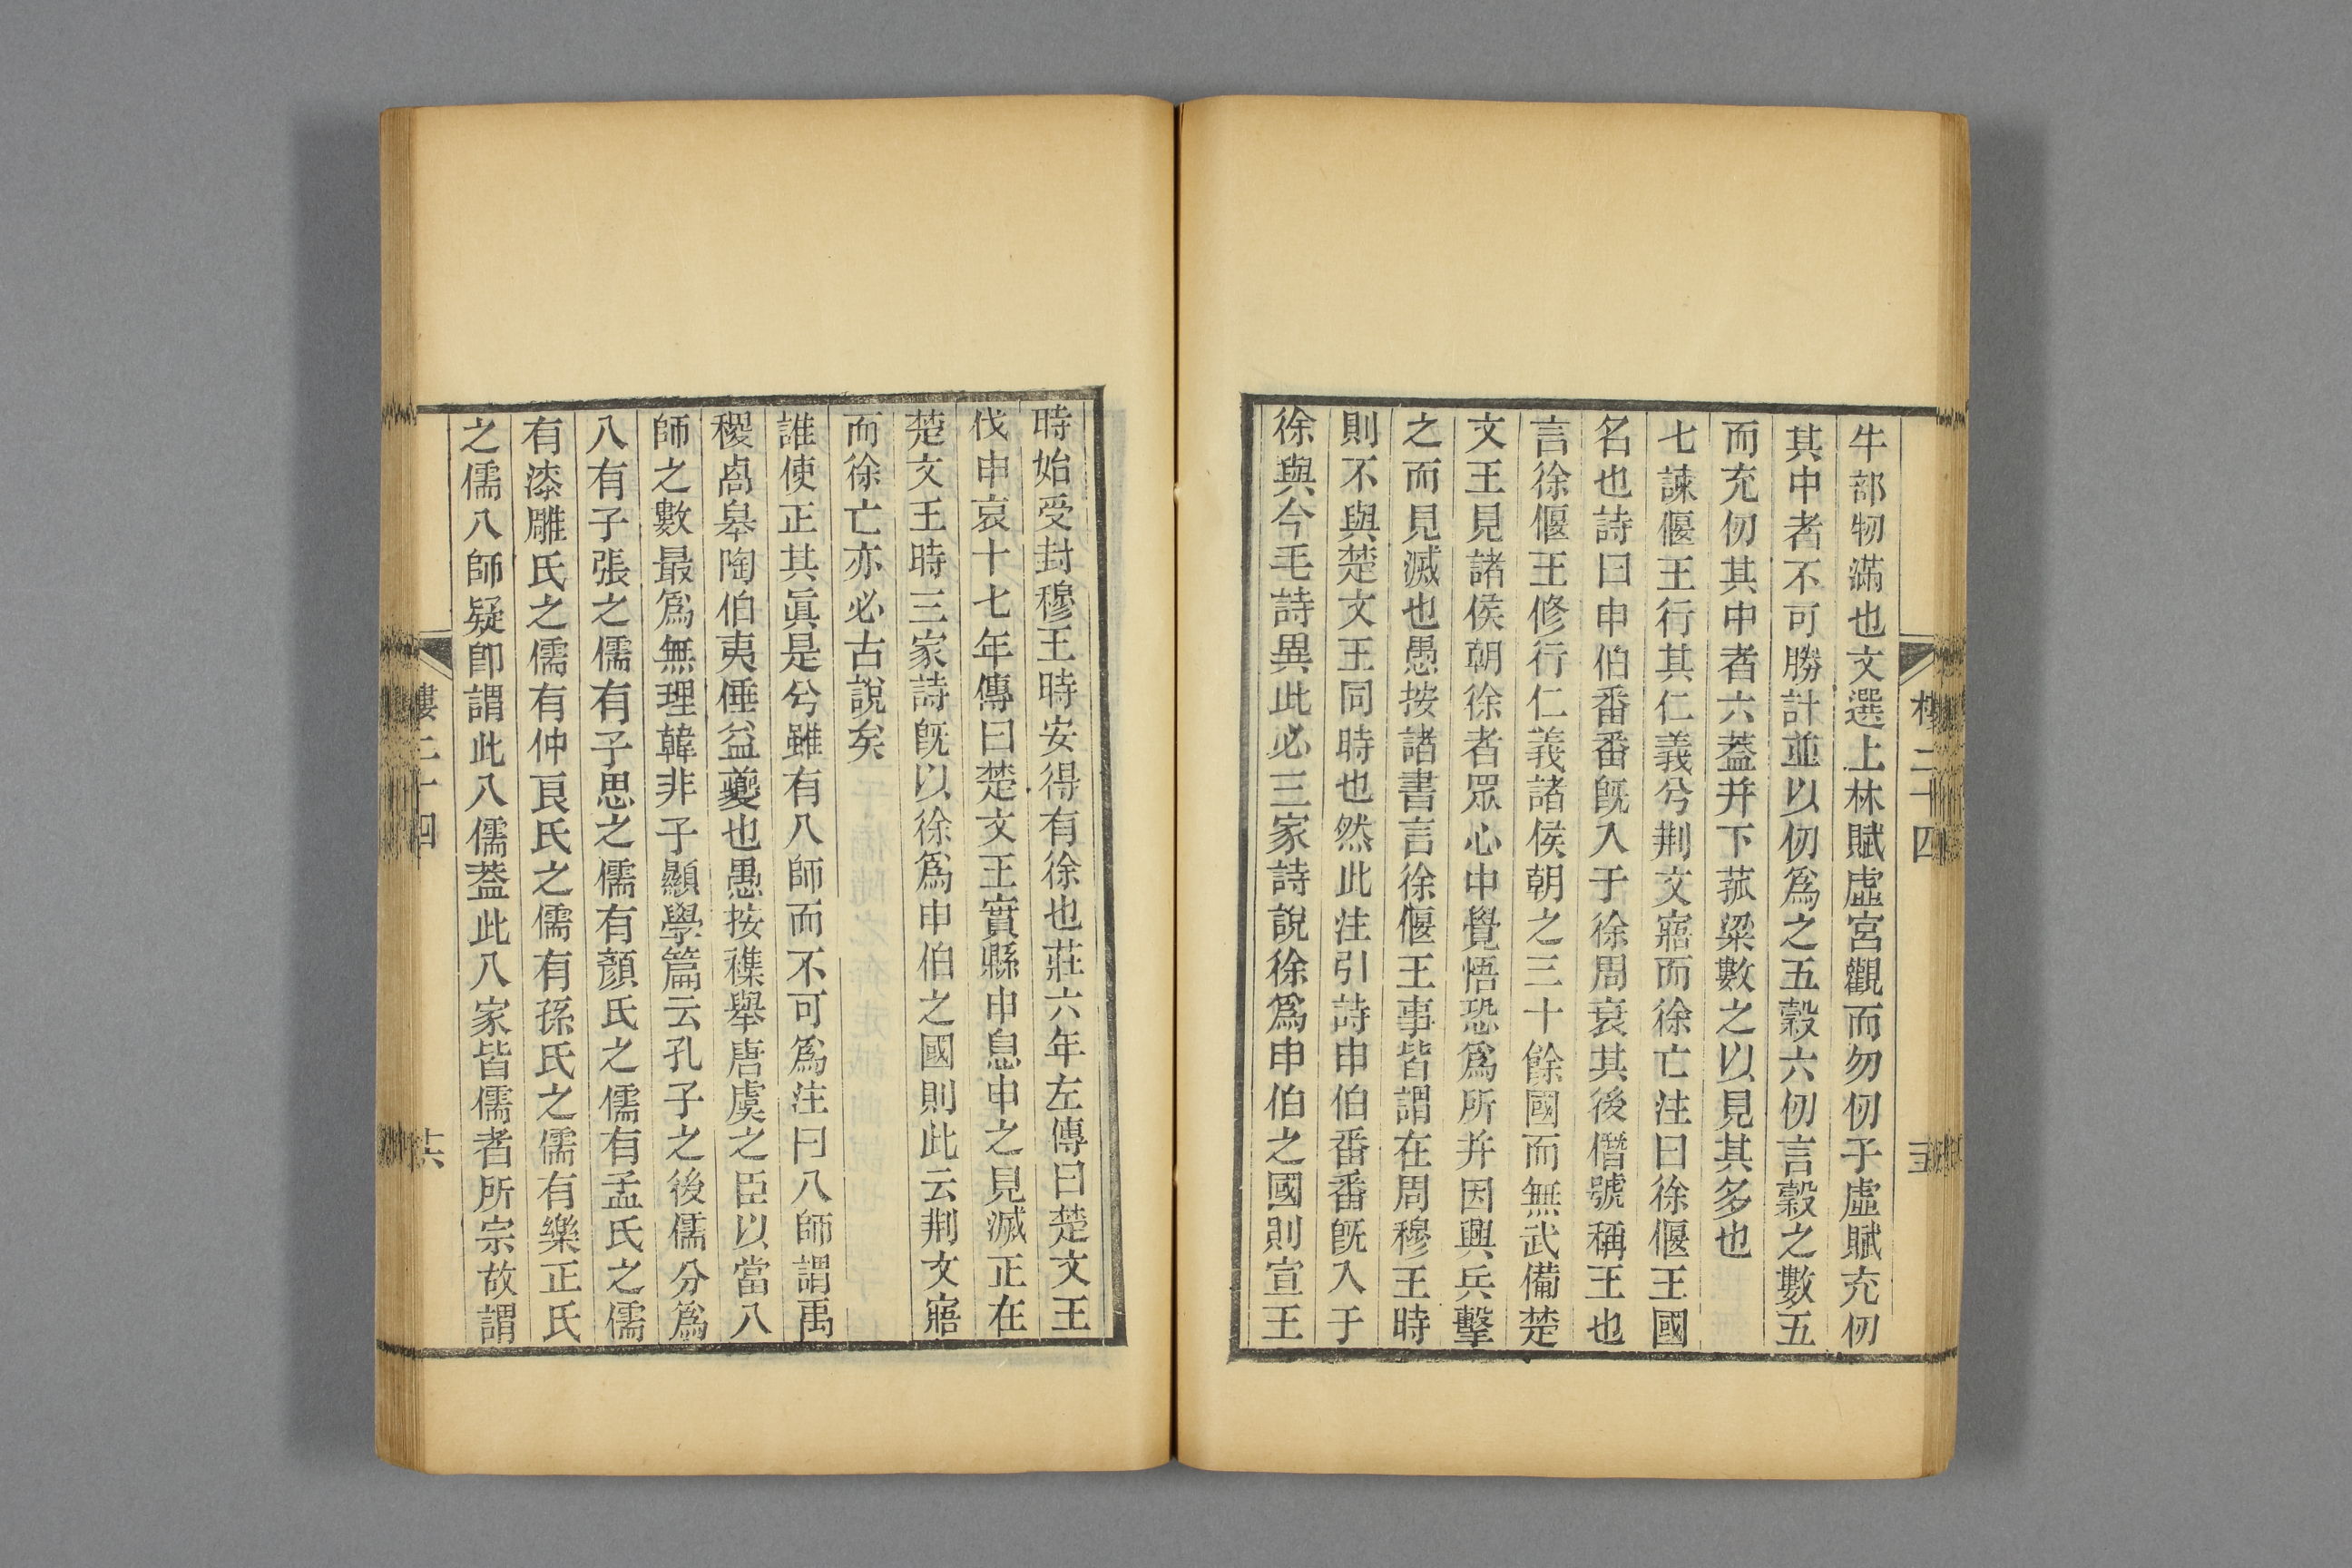 牛部牣滿也文選上林賦虛宮觀而勿仞子虛賦充仞
其中者不可勝計並以仞爲之五穀六仞言穀之數五
而充仞其中者六葢并下菰粱數之以見其多也
七諫偃王行其仁義兮荆文寤而徐亡注曰徐偃王國
名也詩曰申伯番番旣入于徐周衰其後僭號稱王也
言徐偃王修行仁義諸侯朝之三十餘國而無武備楚
文王見諸侯朝徐者眾心中覺悟恐爲所并因興兵擊
之而見滅也愚按諸書言徐偃王事皆謂在周穆王時
則不與楚文王同時也然此注引詩申伯番番旣入于
徐與今毛詩異此必三家詩說徐爲申伯之國則宣王
樓二十四
時始受封穆王時安得有徐也莊六年左傳曰楚文王
伐申哀十七年傳曰楚文王實縣申息申之見滅正在
楚文王時三家詩旣以徐爲申伯之國則此云荆文寤
而徐亡亦必古說矣
誰使正其眞是兮雖有八師而不可爲注曰八師謂禹
稷卨皋陶伯夷倕益夔也愚按襍舉唐虞之臣以當八
師之數最爲無理韓非子顯學篇云孔子之後儒分爲
八有子張之儒有子思之儒有顏氏之儒有孟氏之儒
有漆雕氏之儒有仲良氏之儒有孫氏之儒有樂正氏
之儒八師疑卽謂此八儒葢此八家皆儒者所宗故謂
樓二十四